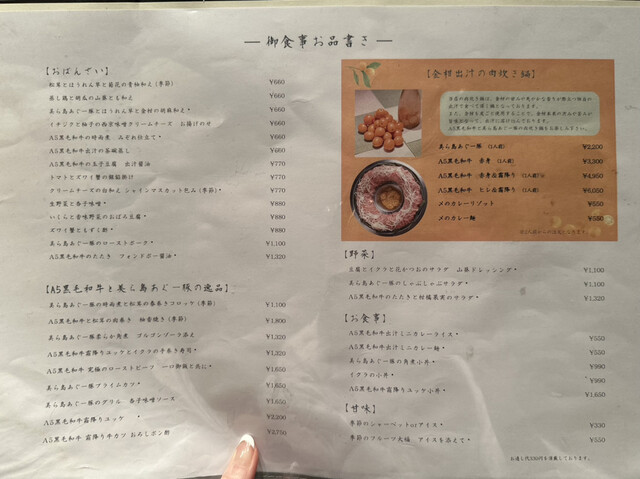 ― 御食事お品書き ―
【おばんざい】
松茸とほうれん草と菊花の青柚和え(季節) ¥660
蒸し鶏と胡瓜の山葵とも和え ¥660
美ら島あぐー豚とほうれん草と金柑の胡麻和え ¥660
イチジクと柚子の西京味噌クリームチーズ お揚げのせ ¥660
A5黒毛和牛の時雨煮 みぞれ仕立て ¥660
A5黒毛和牛出汁の茶碗蒸し ¥660
A5黒毛和牛の玉子豆腐 出汁醤油 ¥770
トマトとズワイ蟹の ¥770
クリームチーズの白和え シャインマスカット包み(季節) ¥770
生野菜と杏子味噌 ¥880
いくらと金味野菜のおぼろ豆腐 ¥880
ズワイ蟹ともずく酢 ¥880
美ら島あぐー豚のローストポーク ¥1,100
A5黒毛和牛のたたき フォンドボー醤油 ¥1,320
【A5黒毛和牛と美ら島あぐー豚の逸品】
美ら島あぐー豚の時雨煮と松茸の春巻きコロッケ(季節) ¥1,100
A5黒毛和牛と松茸の肉巻き 柚釜焼き(季節) ¥1,800
美ら島あぐー豚柔らか角煮 ゴルゴンゾーラ添え ¥1,320
A5黒毛和牛霜降りユッケとイクラの手巻き寿司 ¥1,320
A5黒毛和牛 究極のローストビーフ 一口御飯と共に ¥1,650
美ら島あぐー豚プライムカツ ¥1,650
美ら島あぐー豚のグリル 杏子味噌ソース ¥1,650
A5黒毛和牛霜降りユッケ ¥2,200
A5黒毛和牛 霜降り牛カツ おろしポン酢 ¥2,750
【金柑出汁の肉炊き鍋】
A5黒毛和牛と美ら島あぐー豚の肉炊き鍋をお楽しみ下さい。
美ら島あぐー豚 (1人前) ¥2,200
A5黒毛和牛 赤身 (1人前) ¥3,300
A5黒毛和牛 赤身&霜降り (1人前) ¥4,950
A5黒毛和牛 ヒレ&霜降り (1人前) ¥6,050
〆のカレーリゾット ¥550
〆のカレー麺 ¥550
【野菜】
豆腐とイクラと花かつおのサラダ 山葵ドレッシング ¥1,100
美ら島あぐー豚のしゃぶしゃぶサラダ ¥1,100
A5黒毛和牛のたたきと柑橘果実のサラダ ¥1,320
【お食事】
A5黒毛和牛出汁ミニカレーライス ¥550
A5黒毛和牛出汁ミニカレー麺 ¥550
美ら島あぐー豚の角煮小丼 ¥990
イクラの小丼 ¥990
A5黒毛和牛霜降りユッケ小丼 ¥1,650
【甘味】
季節のシャーベットorアイス ¥330
季節のフルーツ大福 アイスを添えて ¥550
お通し代330円を頂戴しております。